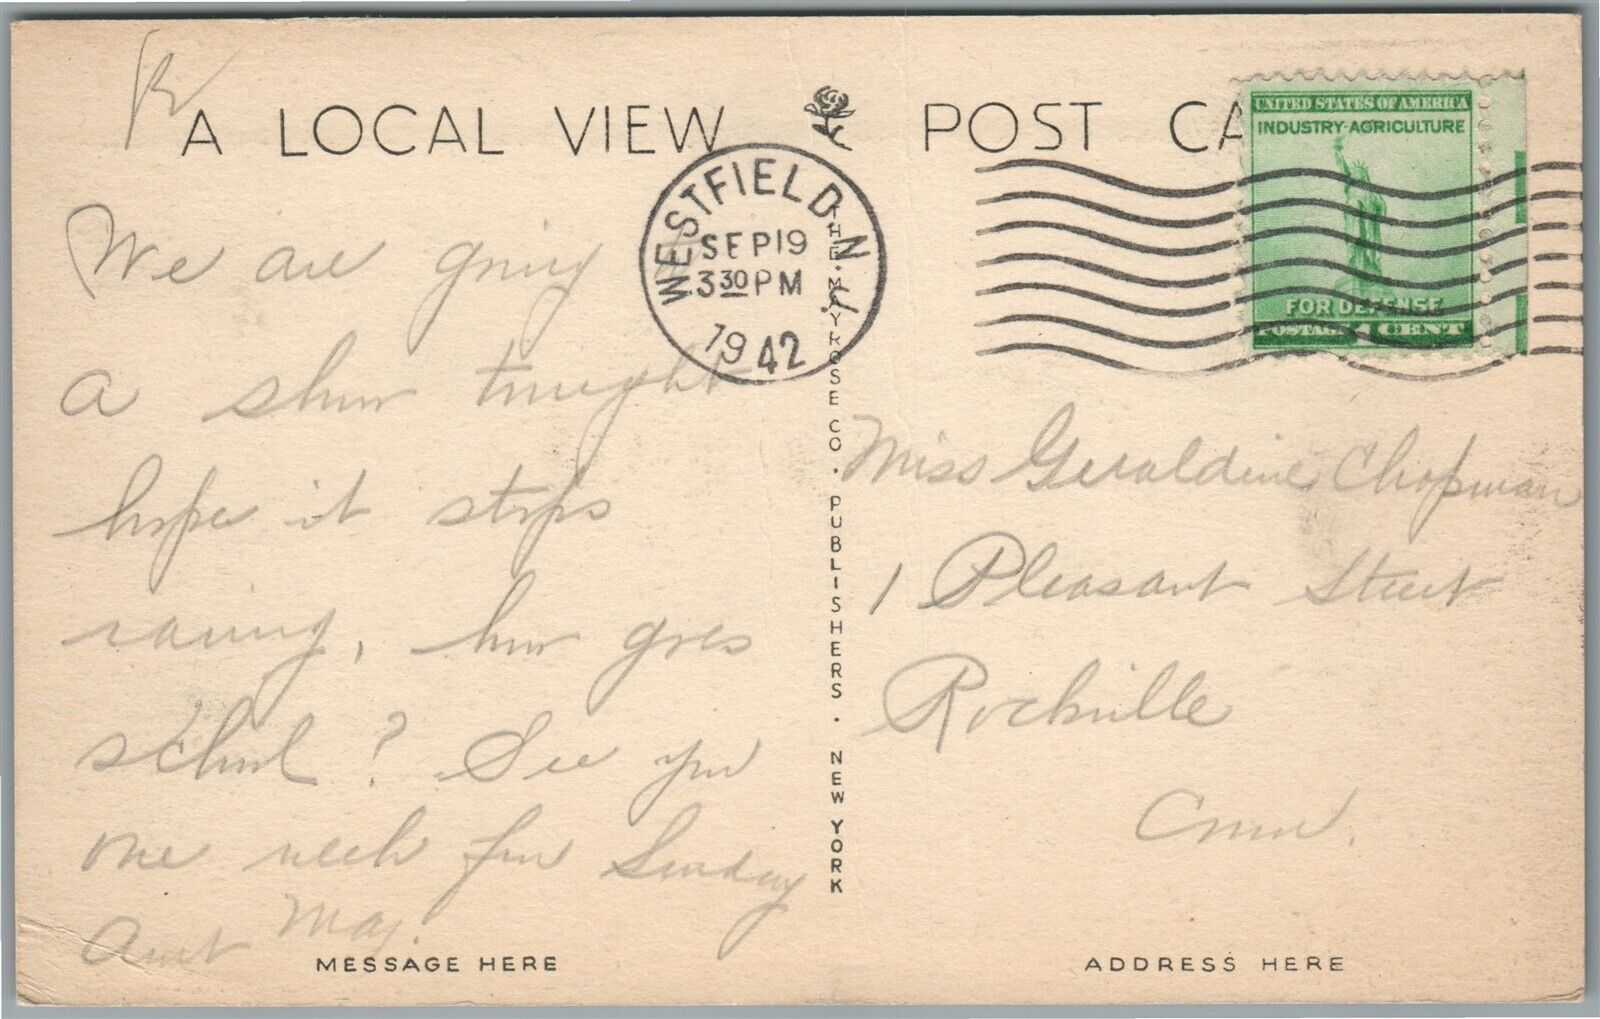 A LOCAL VIEW POST CA
UNITED STATES OF AMERICA
INDUSTRY-AGRICULTURE
FOR DEFENSE
POSTAGE 1 CENT
WESTFIELD, N.J.
SEP 19
3 30 PM
1942
We are going
a show tonight
hope it stops
raining, how goes
school? See you
one week from Sunday
Aunt Maj.
MESSAGE HERE
THE MAYROSE CO. PUBLISHERS. NEW YORK
Miss Geraldine Chapman
1 Pleasant Street
Rockville
Conn.
ADDRESS HERE